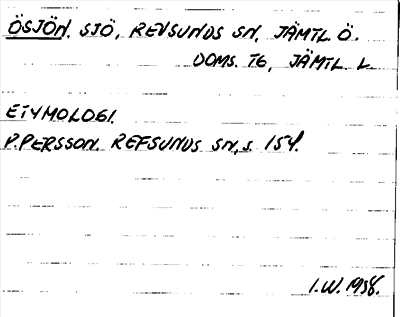 ÖSJÖN. SJÖ, REVSUNDS SN, JÄMTL. Ö.
DOMS. TG, JÄMTL. L.
ETYMOLOGI.
P. PERSSON. REFSUNDS SN, S. 154.
I.W. 1938.